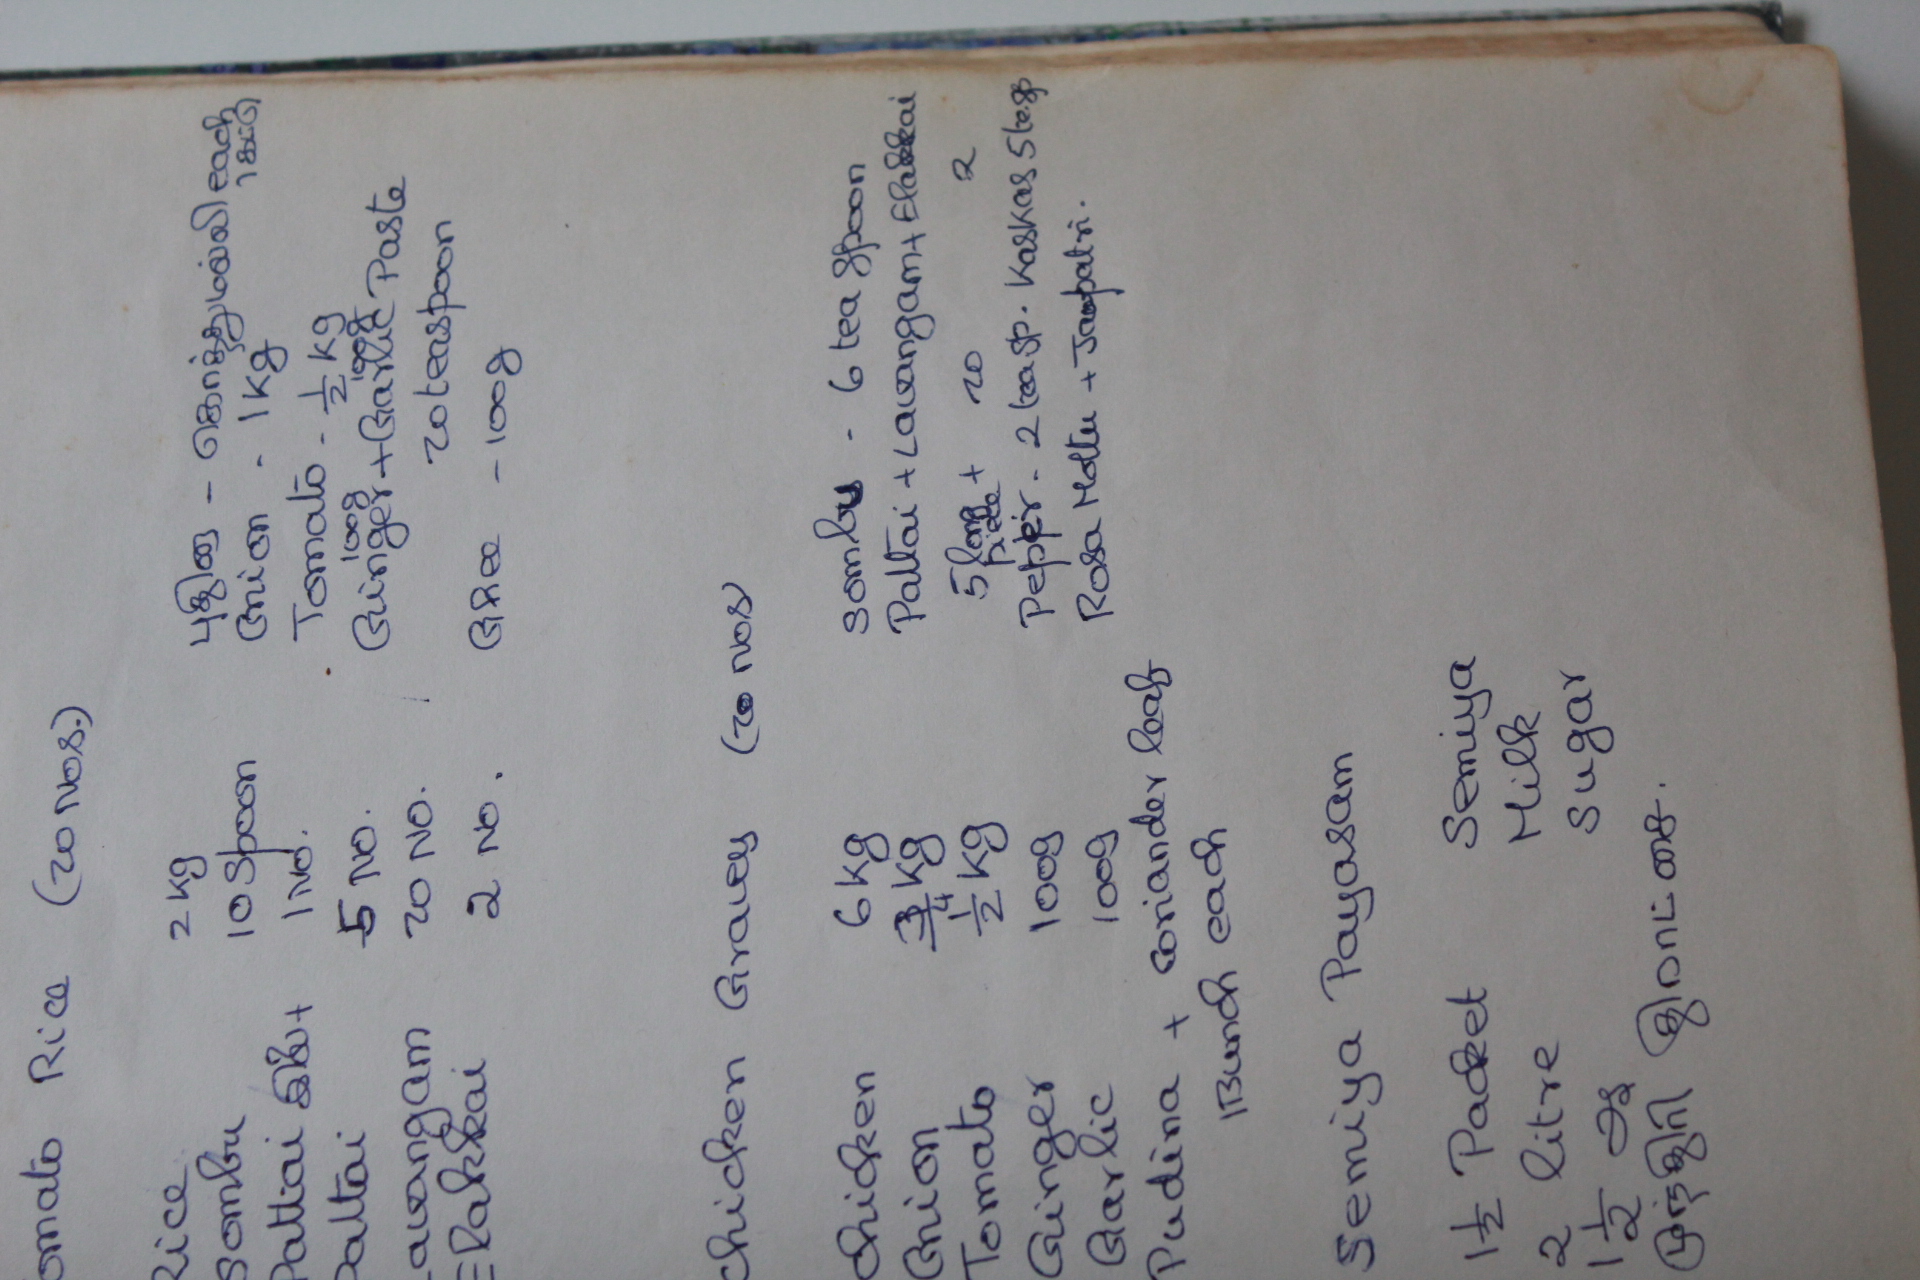 omato Rice (20 Nos.)
Rice 2 kg
Sombu 10 Spoon
Pattai இலை+ 1 No.
Pattai 5 No.
Lavangam 20 No.
Elakkai 2 No.
புதினா - கொத்துமல்லி each
1 கட்டு
Onion - 1 kg
Tomato - 1/2 kg
100g 100g
Ginger + Garlic Paste
20 teaspoon
Ghee - 100g
Chicken Gravey (20 Nos)
Chicken 6 kg
Onion 3/4 kg
Tomato 1/2 kg
Ginger 100g
Garlic 100g
Pudina + coriander leaf
1 Bunch each
Sombu - 6 tea spoon
Pattai + Lavangam + Elakkai
5 long piece + 20 2
Pepper - 2 teasp. Kaskas 5 teasp
Rosa Mottu + Japatri.
Semiya Payasam
1 1/2 Packet Semiya
2 litre Milk
1 1/2 Sugar
முந்திரி திராட்சை.